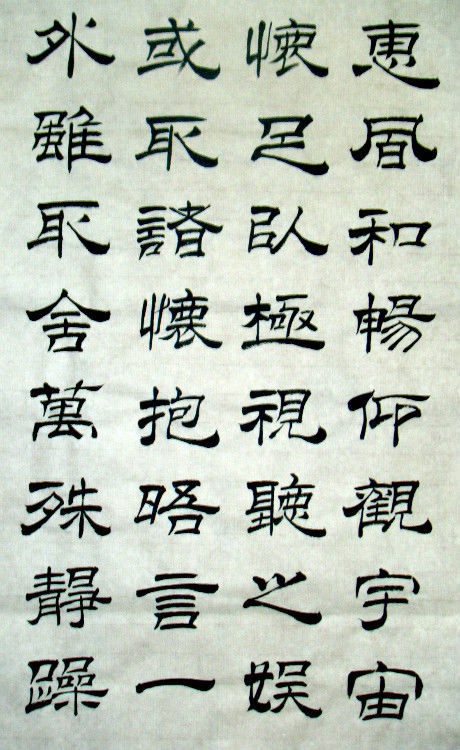 惠風和暢仰觀宇宙
懷足以極視聽之娛
或取諸懷抱晤言一
外雖取舍萬殊靜躁